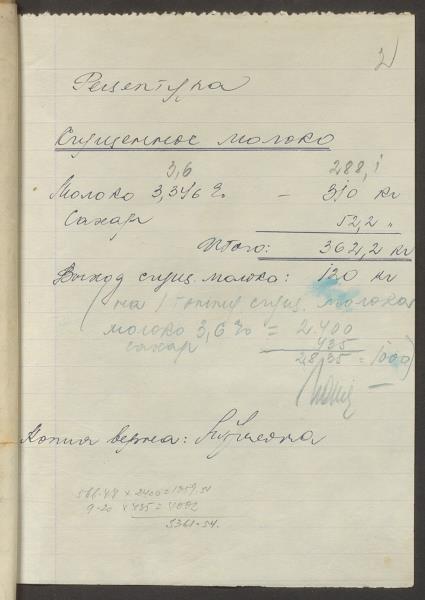 2
Рецептура
Сгущенное молоко
3,6 288,1
Молоко 3,3%  — 310 кг
Сахар 52,2 "
Итого: 362,2 кг
Выход сгущ. молока: 130 кг
(на 1 тонну сгущ. молока
молоко 3,6% = 2.400
сахар 435
2835 = 1000)
Копия верна:
566.48 × 2400 = 1359.51
9-20 × 435 = 4002
5361-54.